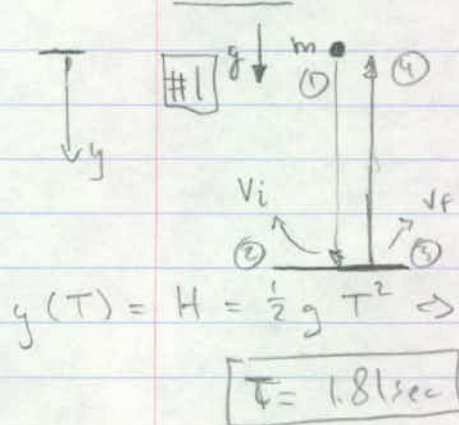 #1 g m ① ④
y
Vi Vf
② ③
y(T) = H = ½ g T² ⇔
T = 1.81sec